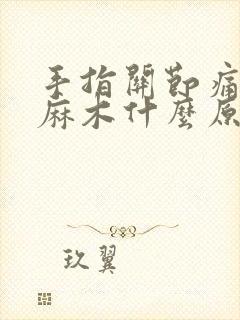 手指關節痛
麻木什麼原
玖翼